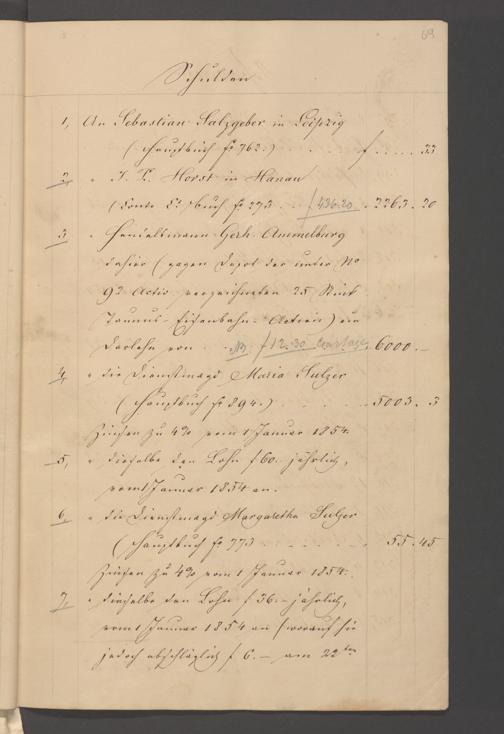 69
Schulden
1, An Sebastian Salzgeber in Leipzig
(Hauptbuch fo 762.) . . . f . . . . 33
2, " J. Horst in Hanau
(Conto Ct. Buch fo 273. . f 436.20 " 2263. 20
3, " Handelsmann Gerh. Ammelburg
dahier (gegen Depot der unter No
92 Activ. verzeichneten 25 Stück
Taunus-Eisenbahn-Actien) ein
Darlehn von . . f 12.30 " 6000. –
4, " die Dienstmagd Maria Sulzer
(Hauptbuch fo 894.) . . . . " 5003. 3
Zinsen zu 4% vom 1 Januar 1854.
5, " dieselbe den Lohn f 60. – jährlich,
vom 1 Januar 1854 an.
6, " die Dienstmagd Margaretha Sulzer
(Hauptbuch fo 773 . . . . . " 55. 45
Zinsen zu 4% vom 1 Januar 1854.
7, " dieselbe den Lohn f 36. – jährlich,
vom 1 Januar 1854 an (worauf sie
jedoch abschläglich f 6. – am 22ten